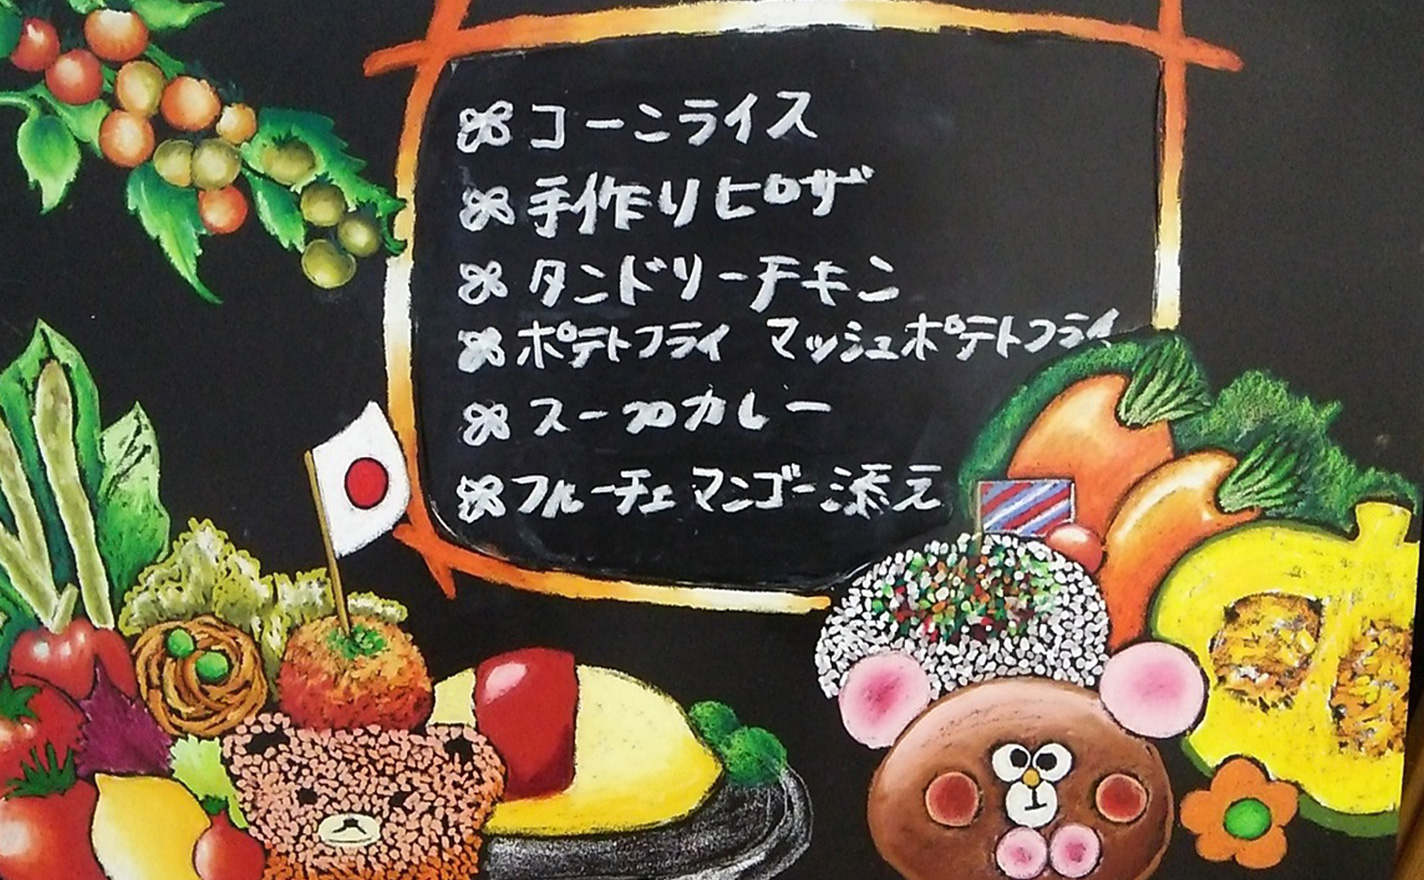 コーンライス
手作りピザ
タンドリーチキン
ポテトフライ マッシュポテトフライ
スープカレー
フルーチェ マンゴー添え